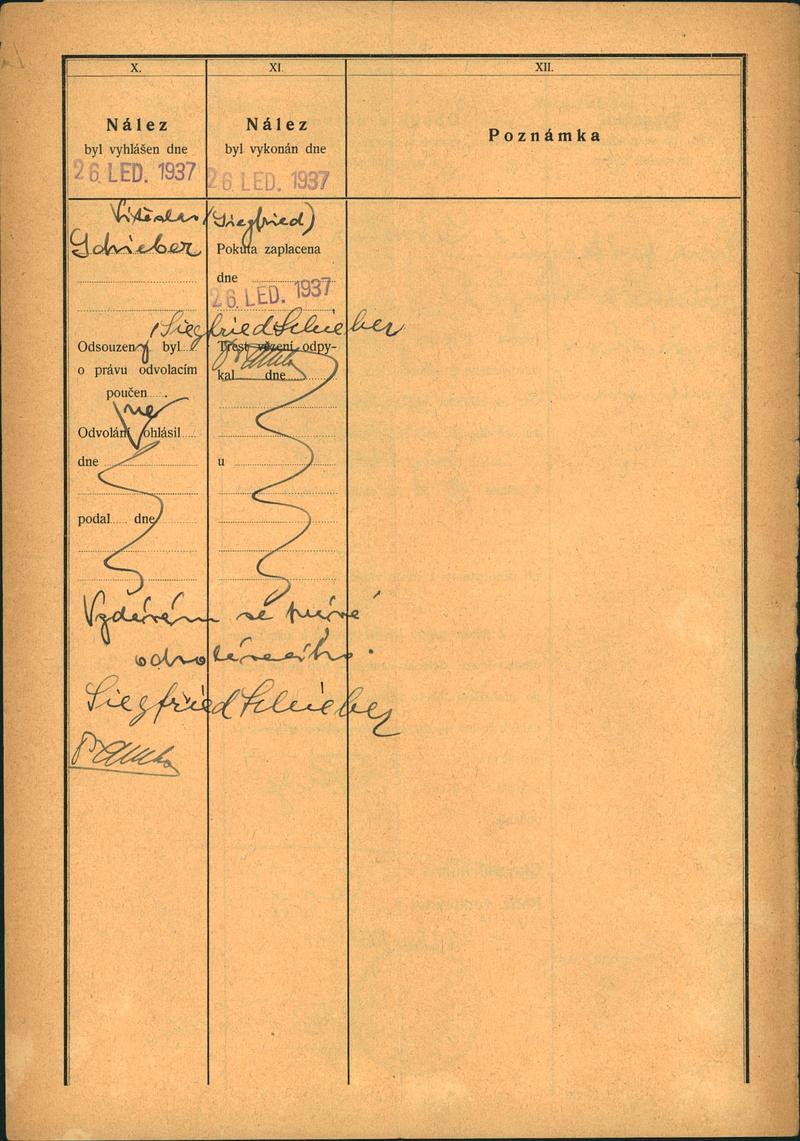 X.
Nález
byl vyhlášen dne
26. LED. 1937
Vítěslav
Schieber
Odsouzený byl
o právu odvolacím
poučen
Odvolání ne ohlásil
dne
podal dne
XI.
Nález
byl vykonán dne
26. LED. 1937
(Siegfried)
Pokuta zaplacena
dne
26. LED. 1937
Siegfried Schieber
Trest vězení odpy-
kal dne
u
XII.
Poznámka
Vzdávám se práva
odvolacího.
Siegfried Schieber